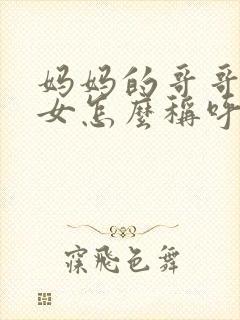 妈妈的哥哥
女怎麽稱呼
寀飛色舞